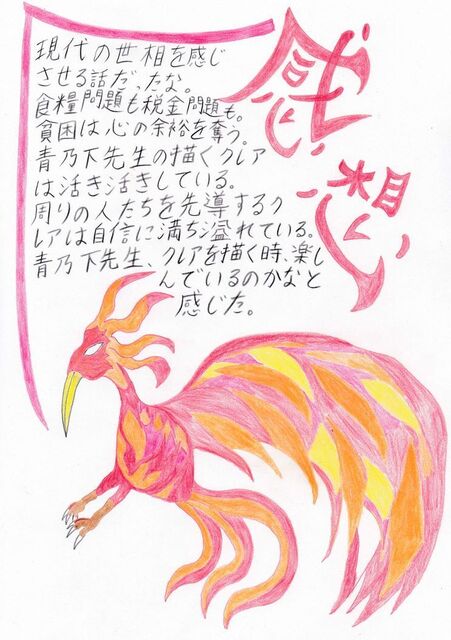 感想
現代の世相を感じ
させる話だったな。
食糧問題も税金問題も。
貧困は心の余裕を奪う。
青乃下先生の描くクレア
は活き活きしている。
周りの人たちを先導するク
レアは自信に満ち溢れている。
青乃下先生、クレアを描く時、楽し
んでいるのかなと
感じた。